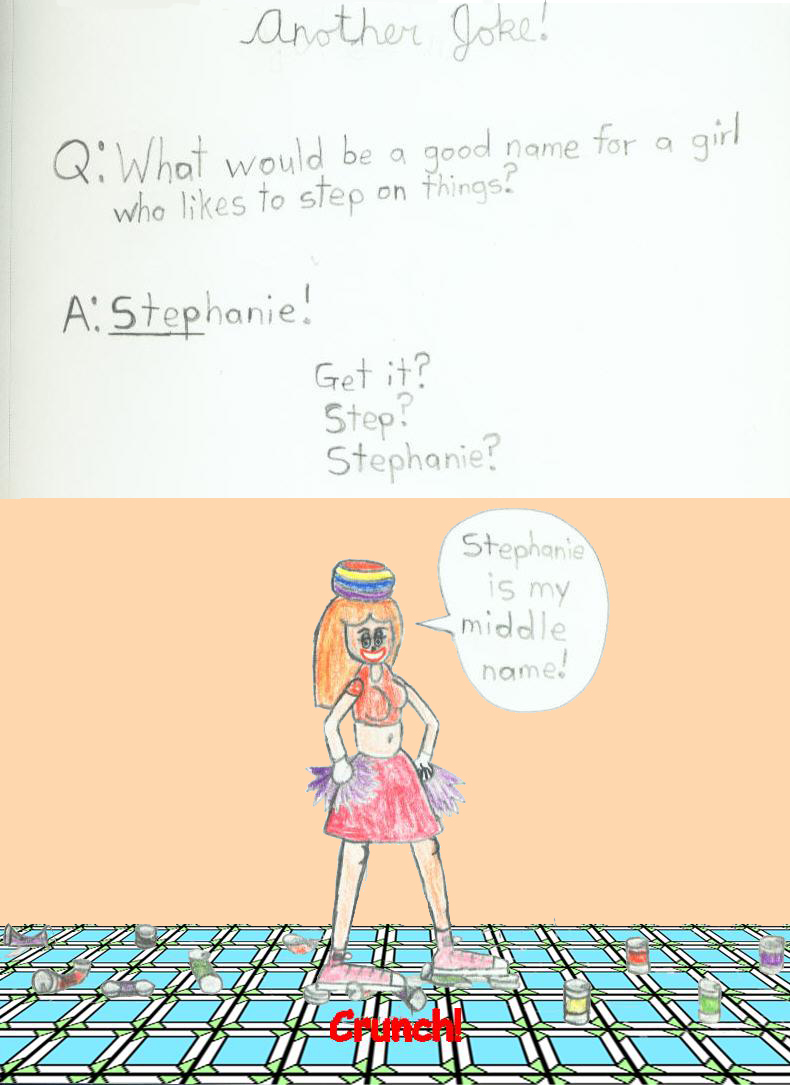 Another Joke!
Q: What would be a good name for a girl
who likes to step on things?
A: Stephanie!
Get it?
Step?
Stephanie?
Stephanie
is my
middle
name!
Crunch!